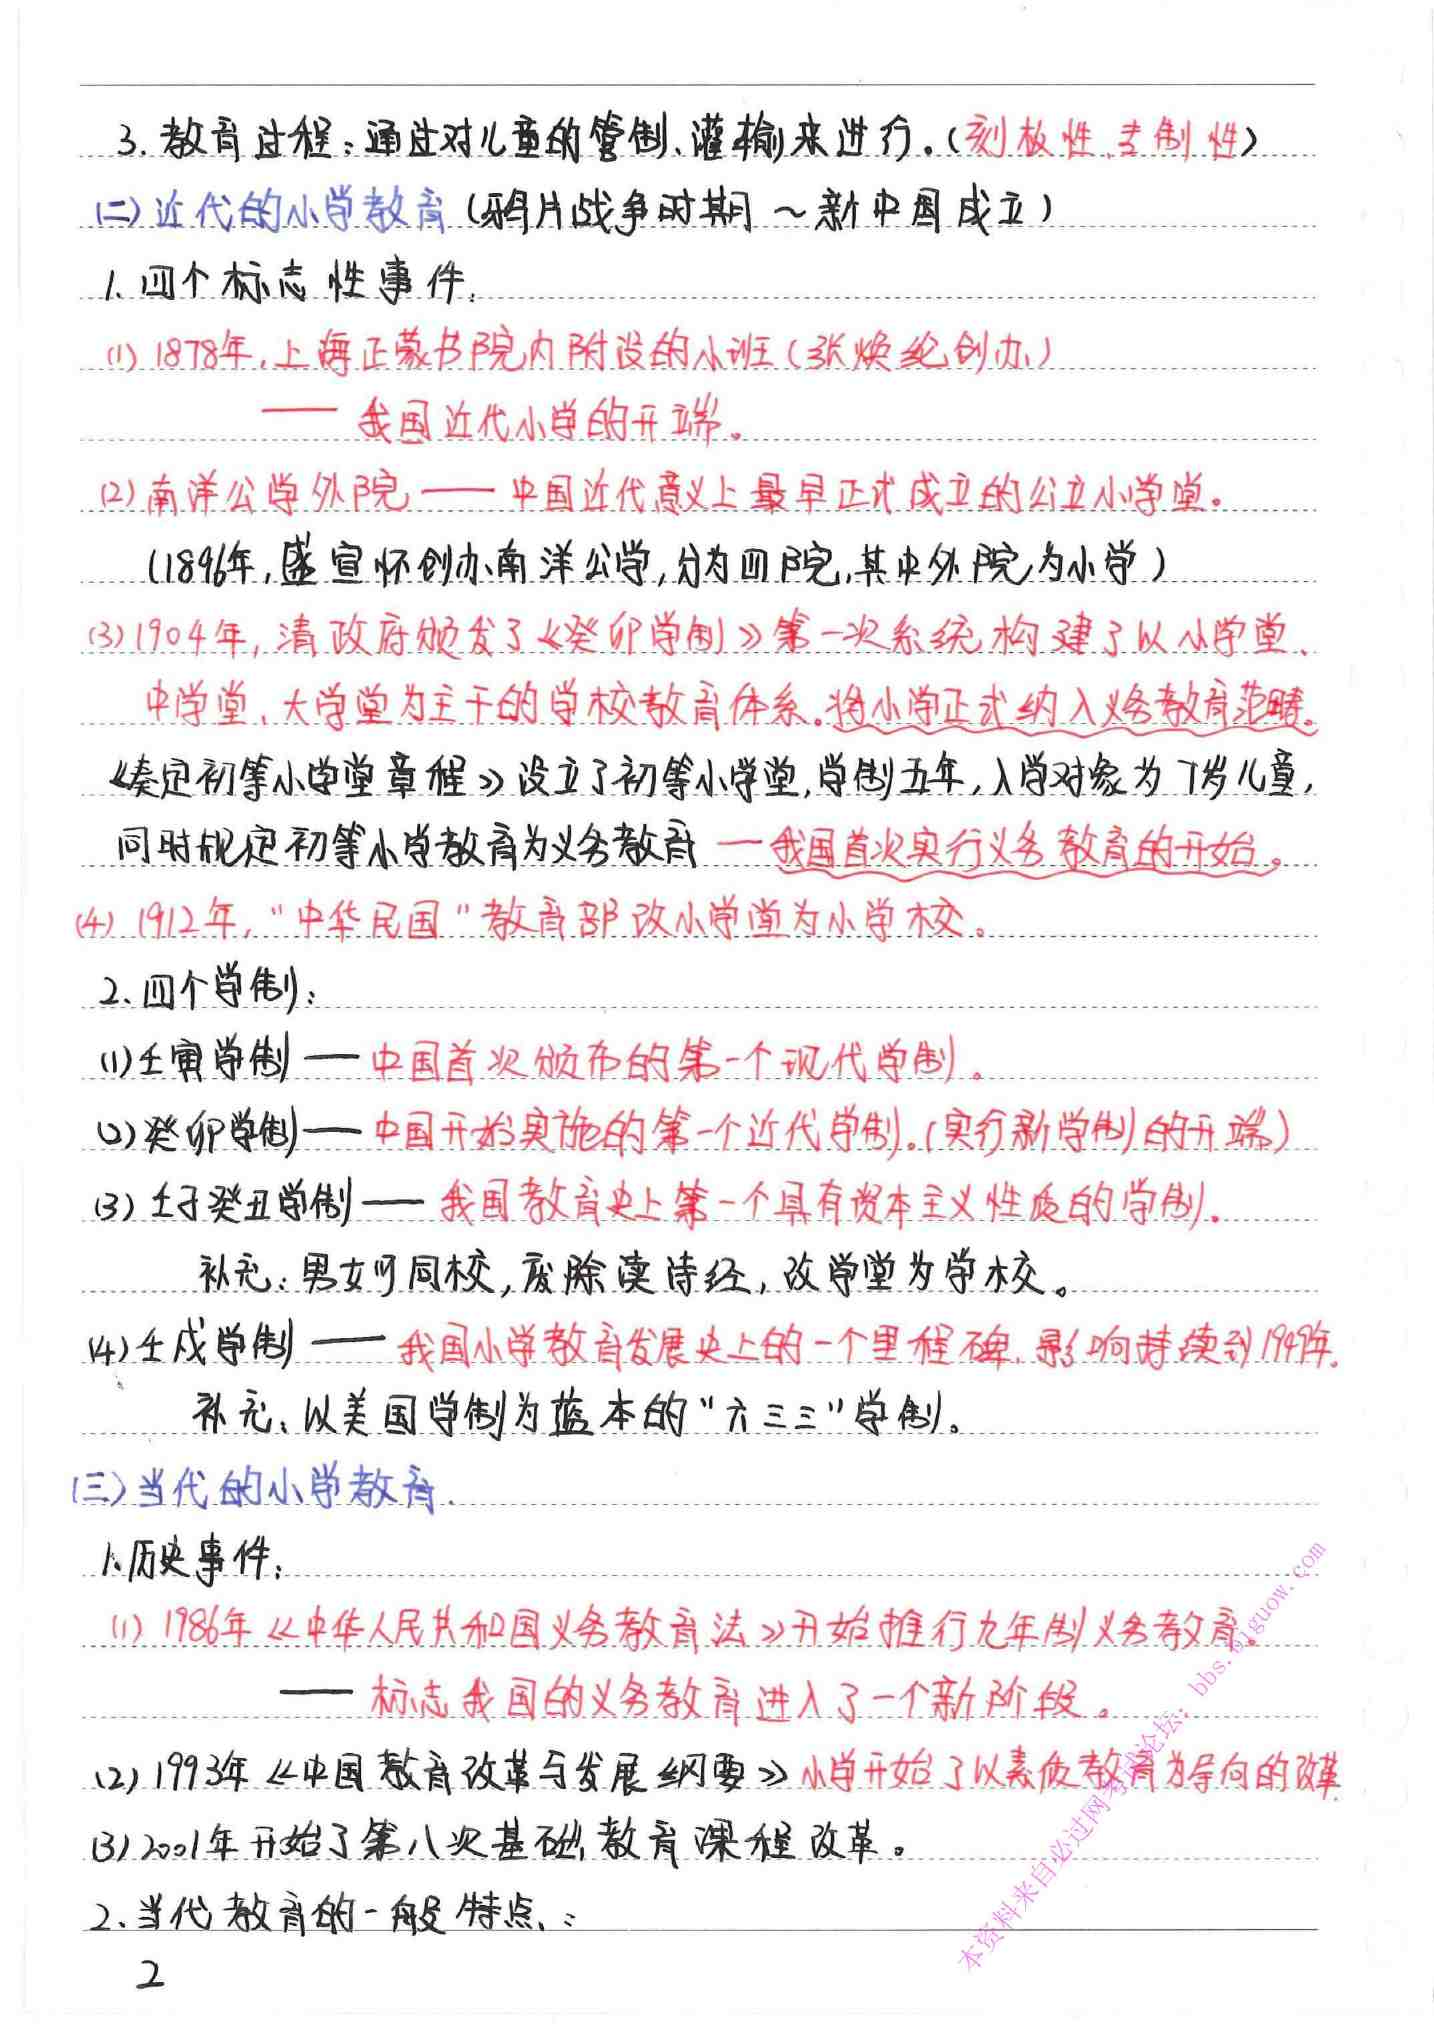 3. 教育过程:通过对儿童的管制、灌输来进行。(刻板性、专制性)
(二)近代的小学教育(鸦片战争时期～新中国成立)
1. 四个标志性事件:
(1) 1878年,上海正蒙书院内附设的小班(张焕纶创办)
—— 我国近代小学的开端。
(2) 南洋公学外院 —— 中国近代意义上最早正式成立的公立小学堂。
(1896年,盛宣怀创办南洋公学,分为四院,其中外院为小学)
(3) 1904年,清政府颁发了《癸卯学制》第一次系统构建了以小学堂、
中学堂、大学堂为主干的学校教育体系。将小学正式纳入义务教育范畴。
《奏定初等小学堂章程》设立了初等小学堂,学制五年,入学对象为7岁儿童,
同时规定初等小学教育为义务教育 — 我国首次实行义务教育的开始。
(4) 1912年,“中华民国”教育部改小学堂为小学校。
2. 四个学制:
(1) 壬寅学制 —— 中国首次颁布的第一个现代学制。
(2) 癸卯学制 —— 中国开始实施的第一个近代学制。(实行新学制的开端)
(3) 壬子癸丑学制 —— 我国教育史上第一个具有资本主义性质的学制。
补充:男女可同校,废除读诗经,改学堂为学校。
(4) 壬戌学制 —— 我国小学教育发展史上的一个里程碑,影响持续到1949年。
补充:以美国学制为蓝本的“六三三”学制。
(三)当代的小学教育.
1. 历史事件:
(1) 1986年《中华人民共和国义务教育法》开始推行九年制义务教育。
—— 标志我国的义务教育进入了一个新阶段。
(2) 1993年《中国教育改革与发展纲要》小学开始了以素质教育为导向的改革.
(3) 2001年开始了第八次基础教育课程改革。
2. 当代教育的一般特点:
2
本资料来自必过网考试论坛:bbs.biguow.com